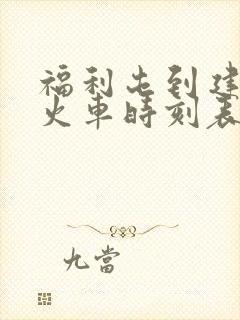 福利屯到建
火車時刻表
九當